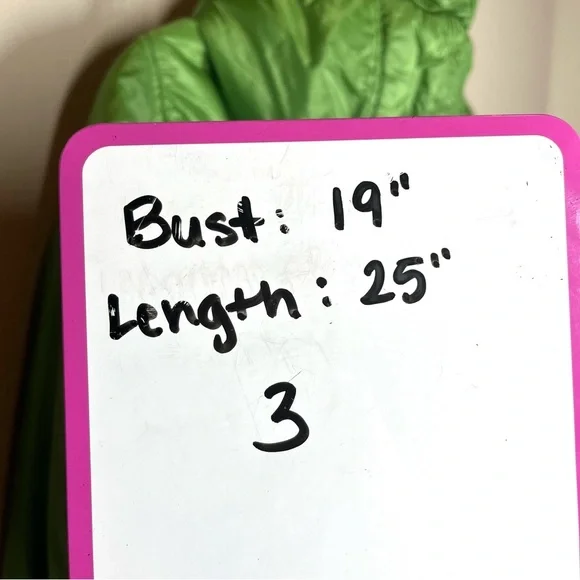 Bust: 19"
Length: 25"
3